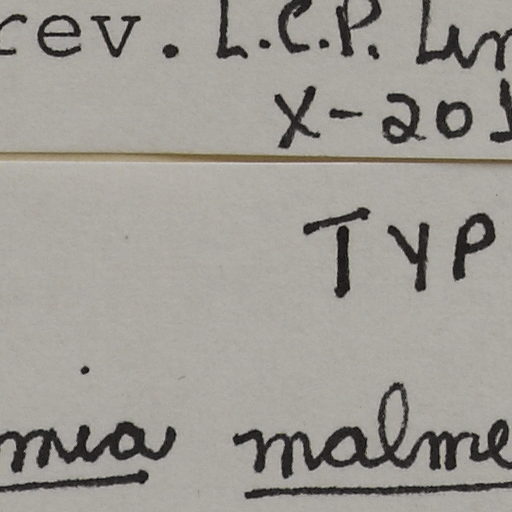 rev. L.C.P. Lim
X-201
TYP
mia malme